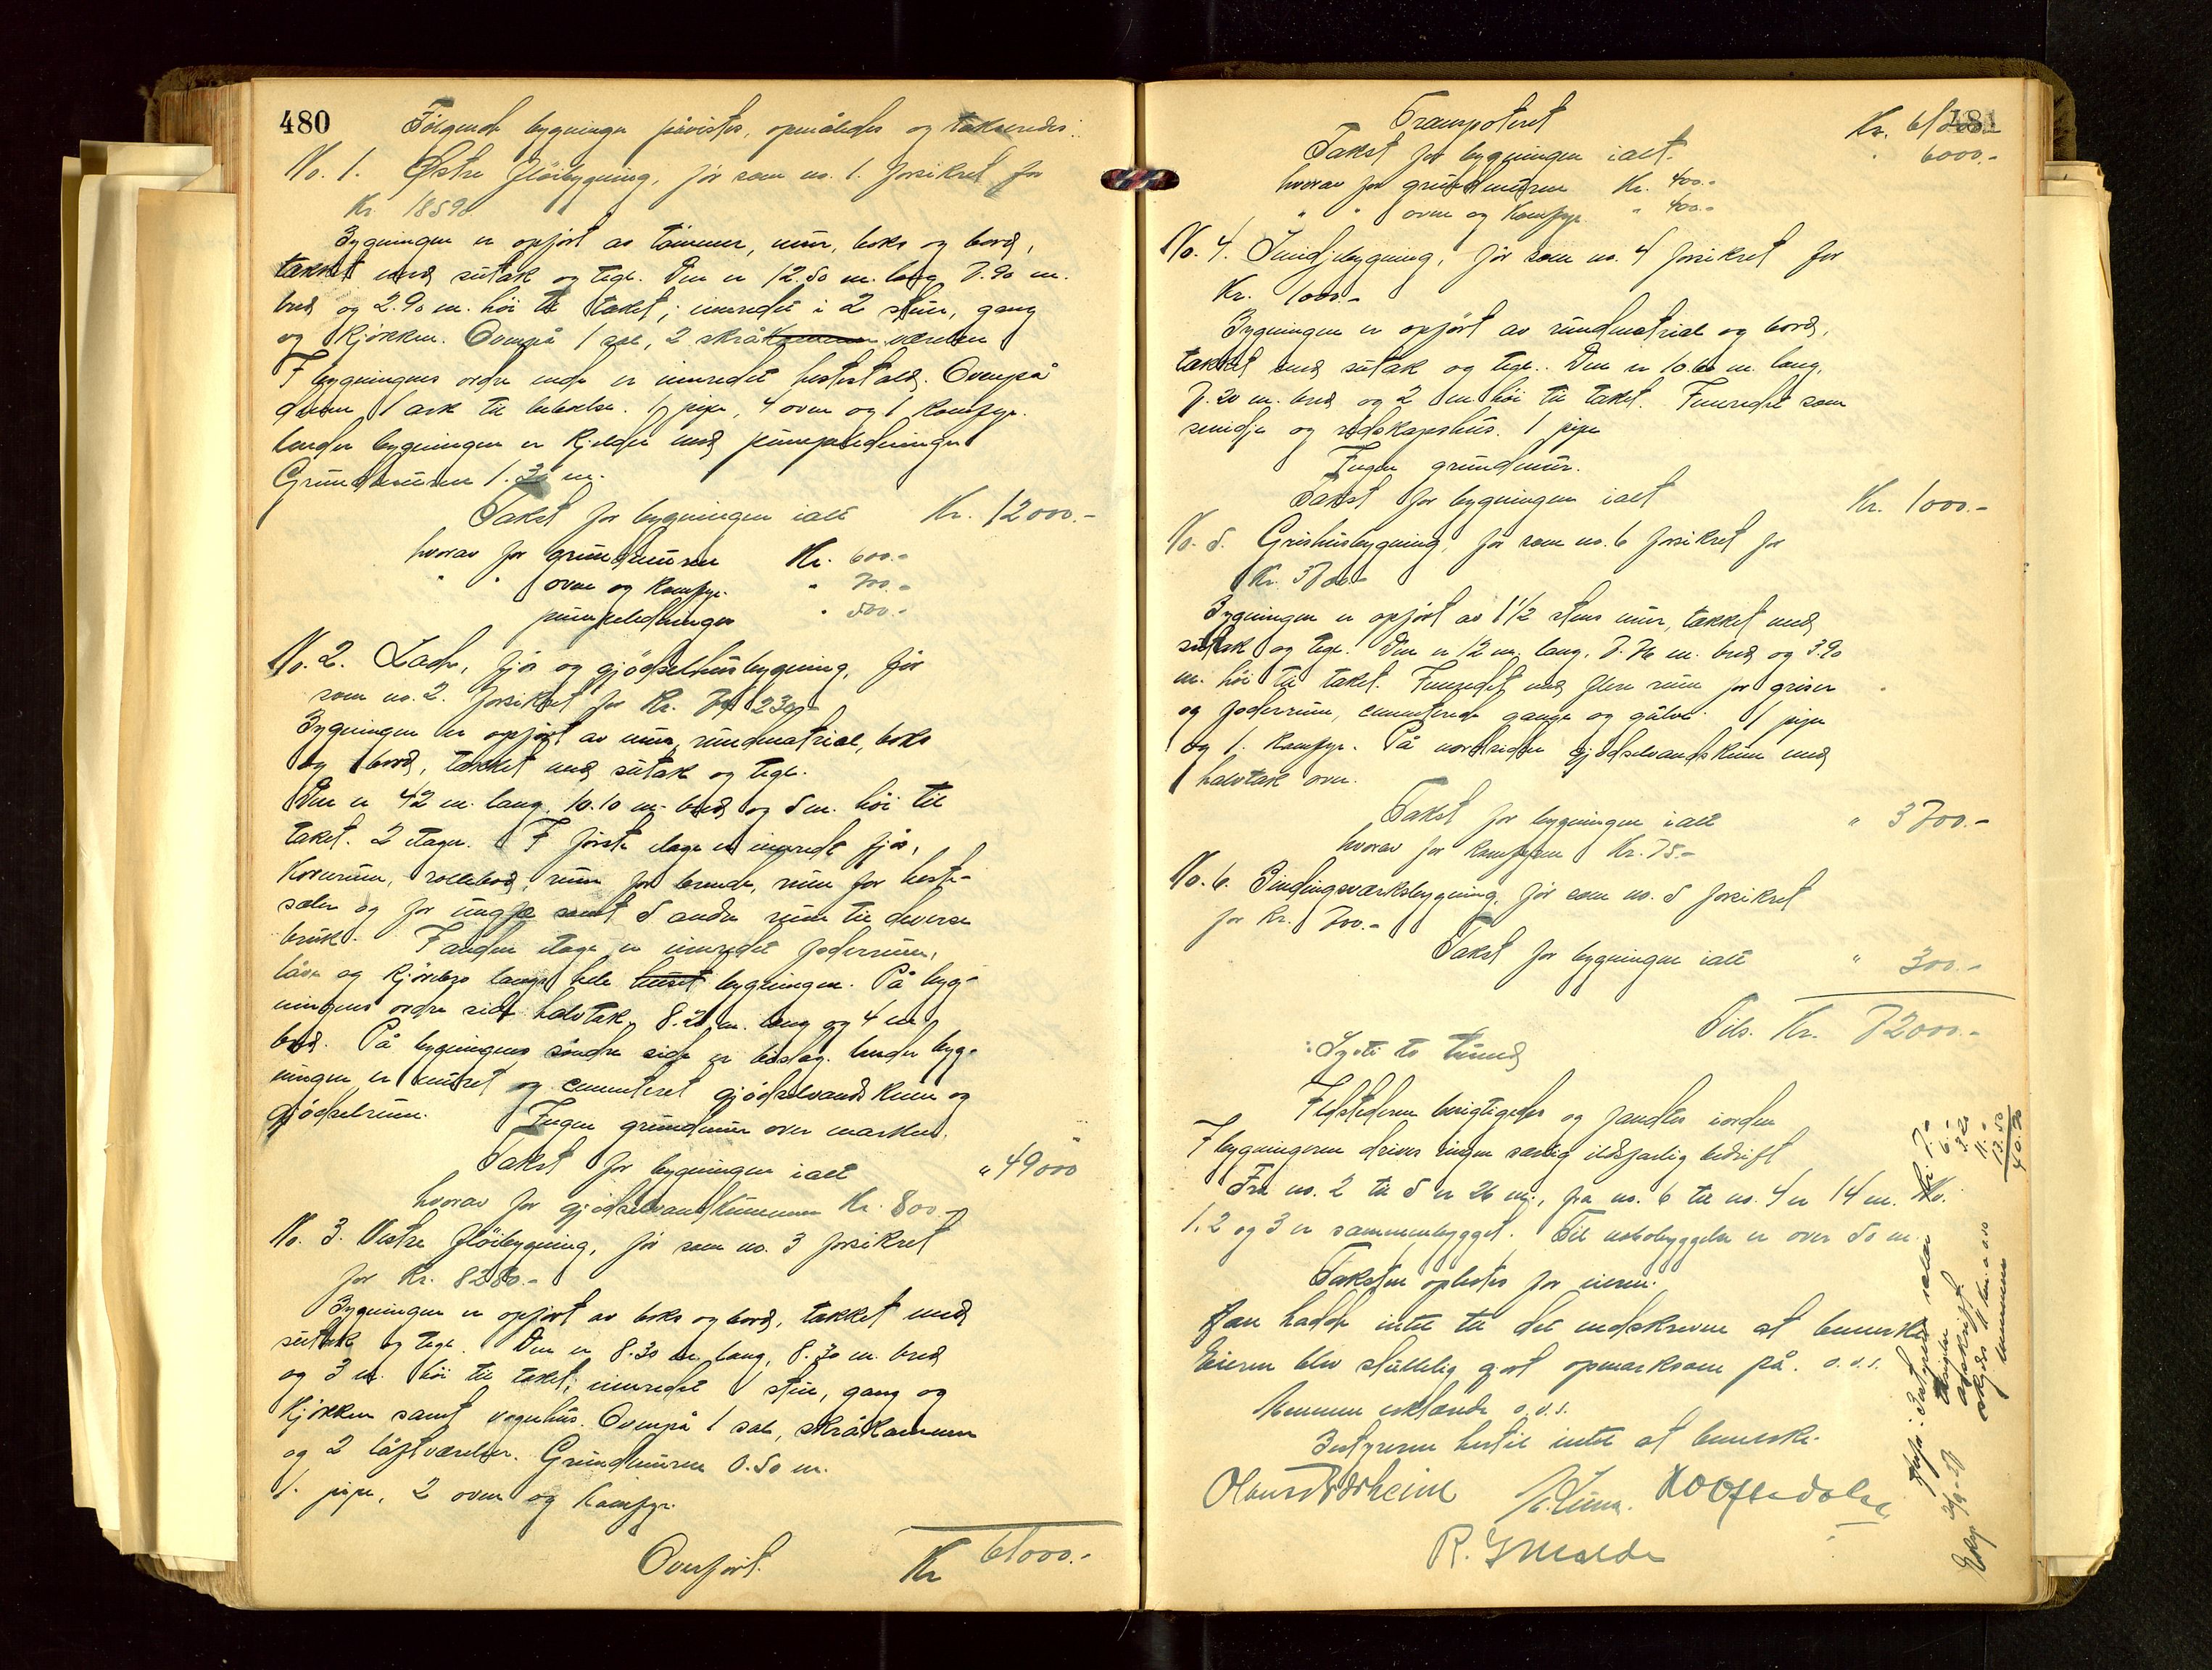 480
Følgende bygninger påvistes, opmåledes og takseredes:
No. 1. Østre fløibygning, før som no. 1. forsikret for
Kr. 18590
Bygningen er opført av tømmer, mur, boks og bord,
tækket med sutak og tegl. Den er 12.50 m. lang 7.90 m.
bred og 2.90 m. høi til taket; innredet i 2 stuer, gang
og kjøkken. Ovenpå 1 sal, 2 skråkammer værelser
I bygningens ende er innredet hestestald. Ovenpå
denne 1 ark til beboelse. 1 pipe, 4 ovner og 1 komfyr.
Under bygningen er kjelder med pumpeledninger
Grundmuren 1.30 m.
Takst for bygningen ialt Kr. 12000.-
hvorav for grundmuren Kr. 600.-
" " ovne og komfyr. " 700.-
pumpeledninger " 500.-
No. 2. Lade, fjøs og gjødselhusbygning, før
som no. 2. forsikret for Kr. 230.-
Bygningen er opført av mur, rundmatrial, boks
og bord, tækket med sutak og tegl.
Den er 42 m. lang, 10.10 m. bred og 5 m. høi til
taket. 2 etager. I første etage er innredet fjøs,
kornrum, rullebod, rum for brende, rum for heste-
sæler og for ungfæ samt 5 andre rum til diverse
bruk. I anden etage er innredet foderrum,
låve og kjørebro langs hele huset bygningen. På byg-
ningens side halvtak, 8.20 m. lang og 4 m.
bred. På bygningens søndre side er bislag. Under byg-
ningen er muret og cementeret gjødselvandskum og
gjødselrum. Ingen grundmur over marken.
Takst for bygningen ialt " 49000
hvorav for gjødselvandkummen Kr. 800.-
No. 3. Vestre fløibygning, før som no. 3 forsikret
for Kr. 8280.-
Bygningen er opført av boks og bord, tækket med
sutak og tegl. Den er 8.30 m. lang, 8.30 m. bred
og 3 m. høi til taket; innredet 1 stue, gang og
kjøkken samt vognhus. Ovenpå 1 sal, skråkammer
og 2 loftværelser. Grundmuren 0.50 m.
1 pipe, 2 ovner og komfyr.
Overført. Kr 61000.-
481
Transporteret Kr. 61000.-
Takst for bygningen ialt. " 6000.-
hvorav for grundmuren Kr. 400.-
" " ovne og komfyr " 400.-
No. 4. Smidjebygning, før som no. 4 forsikret for
Kr. 1000.-
Bygningen er opført av rundmatrial og bord,
tækket med sutak og tegl. Den er 10.60 m. lang,
7.20 m. bred og 2 m. høi til taket. Innredet som
smidje og redskapshus. 1 pipe
Ingen grundmur.
Takst for bygningen ialt Kr. 1000.-
No. 5. Grishusbygning, før som no. 6 forsikret for
Kr. 3700.-
Bygningen er opført av 1 1/2 stens mur, tækket med
sutak og tegl. Den er 12 m. lang, 7.76 m. bred og 3.90
m. høi til taket. Innredet med flere rum for griser
og foderrum, cementerede gange og gulve. 1 pipe
og 1. komfyr. På nordsiden gjødselvandskum med
halvtak over.
Takst for bygningen ialt " 3700.-
hvorav for komfyren Kr. 75.-
No. 6. Bindingsværksbygning, før som no. 5 forsikret
for Kr. 700.-
Takst for bygningen ialt " 300.-
Tils. Kr. 72000.-
: Sytti to tusund
Ildstederne besigtigedes og fandtes iorden
I bygningerne drives ingen særlig ildsfarlig bedrift
Fra no. 2 til 5 er 26 m., fra no. 6 til no. 4 er 14 m. No.
1. 2 og 3 er sammenbygget. Til nabobyggelse er over 50 m.
Taksten oplæstes for eieren.
Han hadde intet til det indskrevne at bemerke
Eieren blev stillelig gjort opmerksom på. o.s.v.
Mennene erklærede o.s.v.
Bestyreren hertil intet at bemerke.
R. G Malde
Bestyrerens salær Kr. 7.-
6.-
avskrift
11.-
13.50
40.70